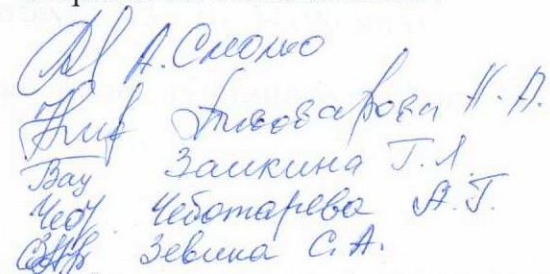 А. Смолко
Пивоварова Н. А.
Зау Заикина Г. Л.
Чеб. Чеботарева А. Г.
Зевина С. А.